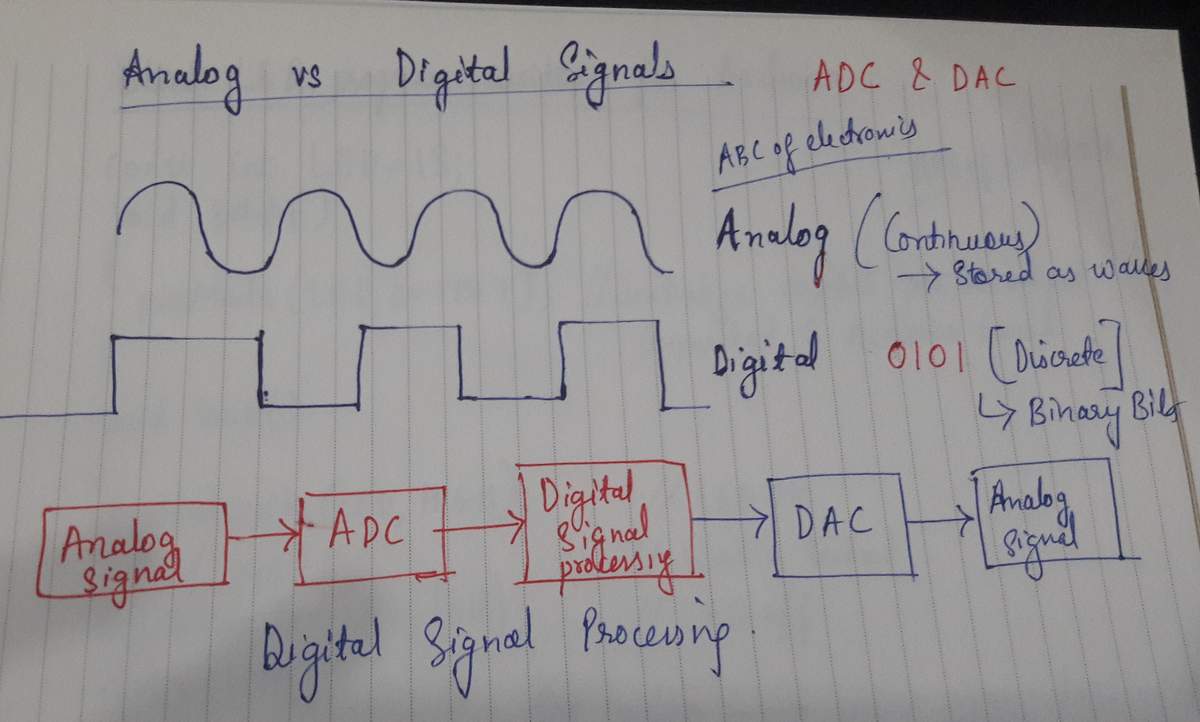 Analog vs Digital Signals
ADC & DAC
ABC of electronics
Analog (Continuous)
→ Stored as waves
Digital 0101 [Discrete]
↳ Binary Bits
Analog
Signal
ADC
Digital
Signal
processing
DAC
Analog
Signal
Digital Signal Processing.